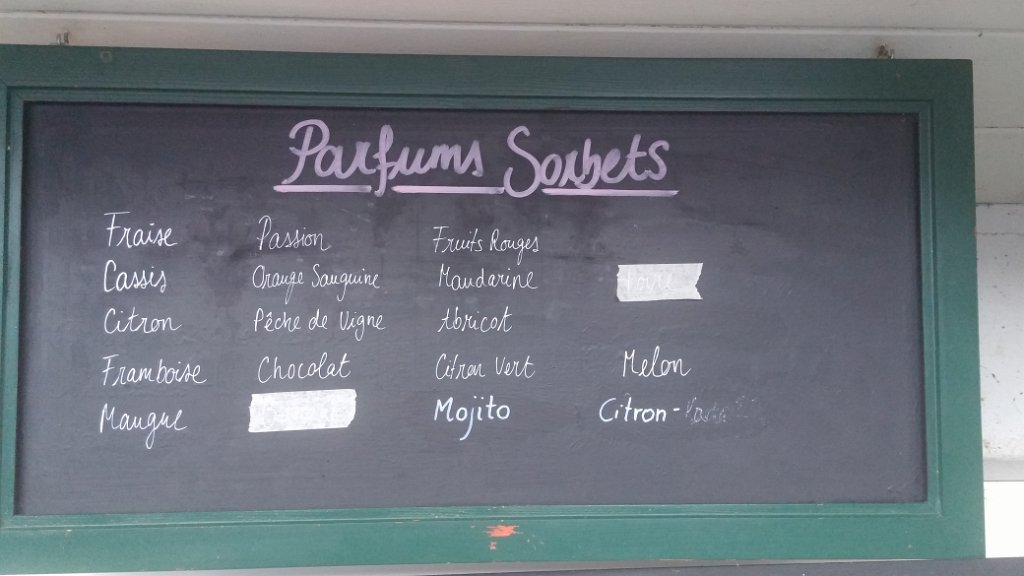 Parfums Sorbets
Fraise Passion Fruits Rouges
Cassis Orange Sanguine Mandarine
Citron Pêche de Vigne Abricot
Framboise Chocolat Citron Vert Melon
Mangue Mojito Citron -